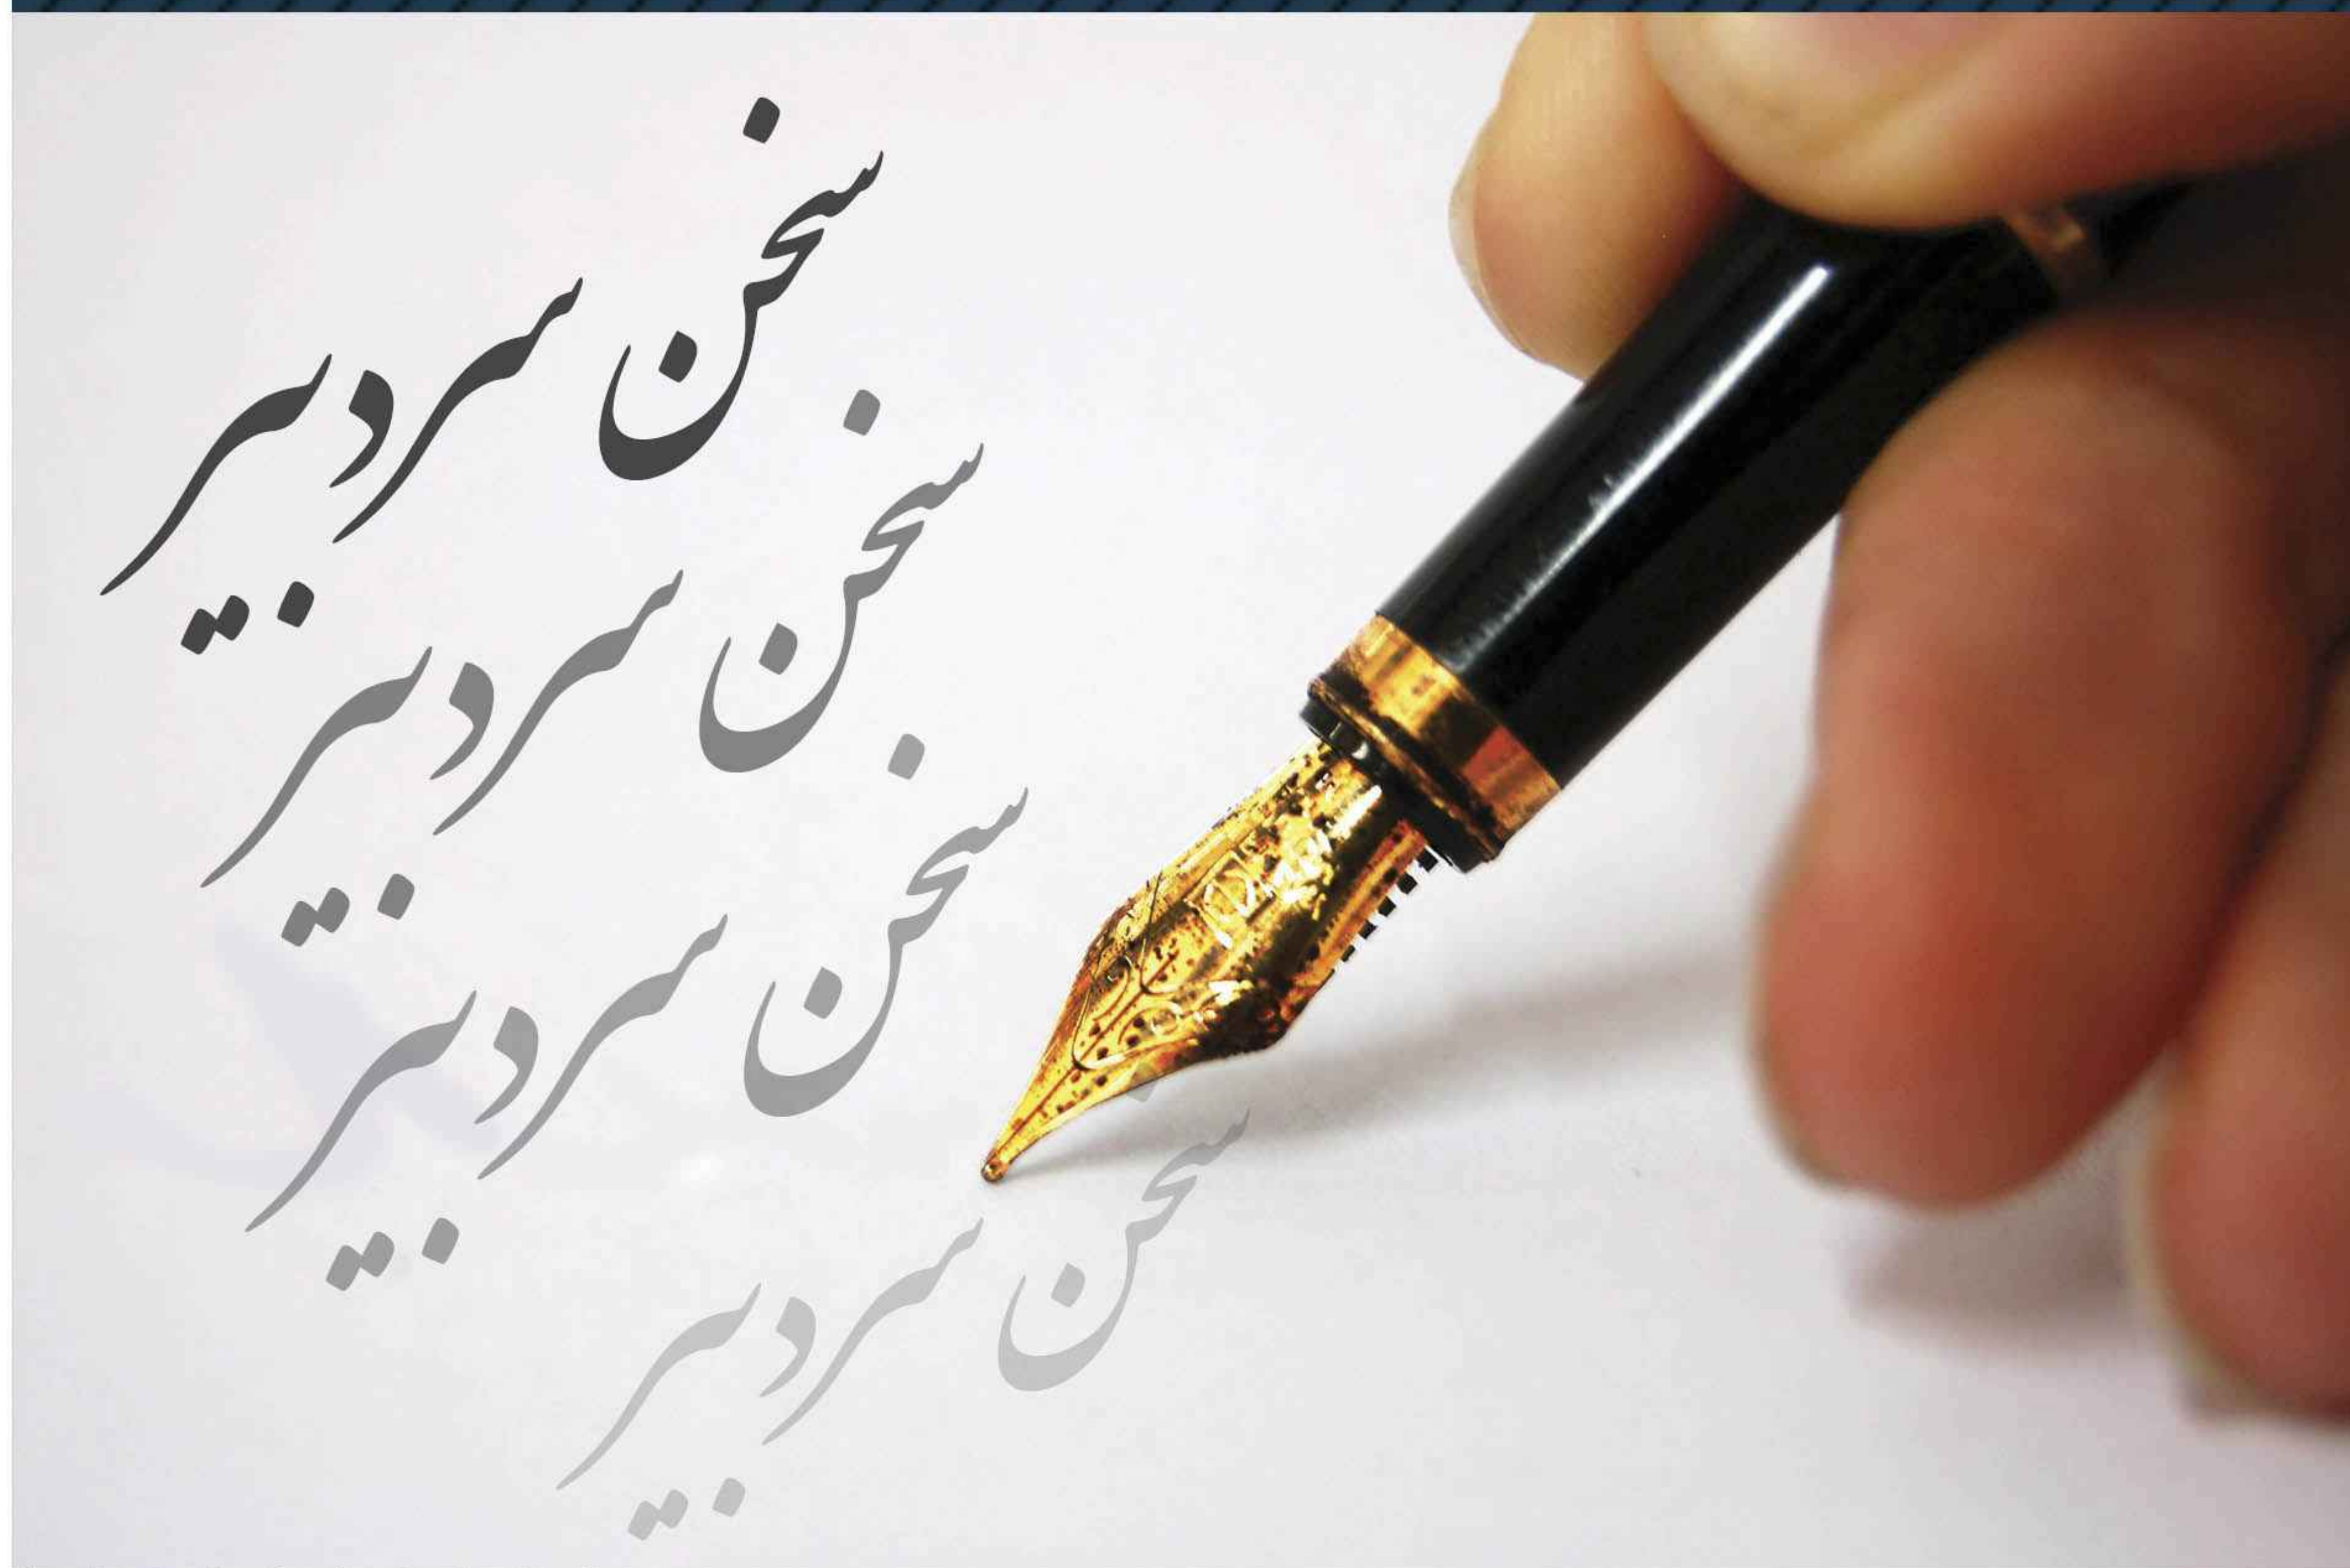 سخن سردبیر
سخن سردبیر
سخن سردبیر
سخن سردبیر